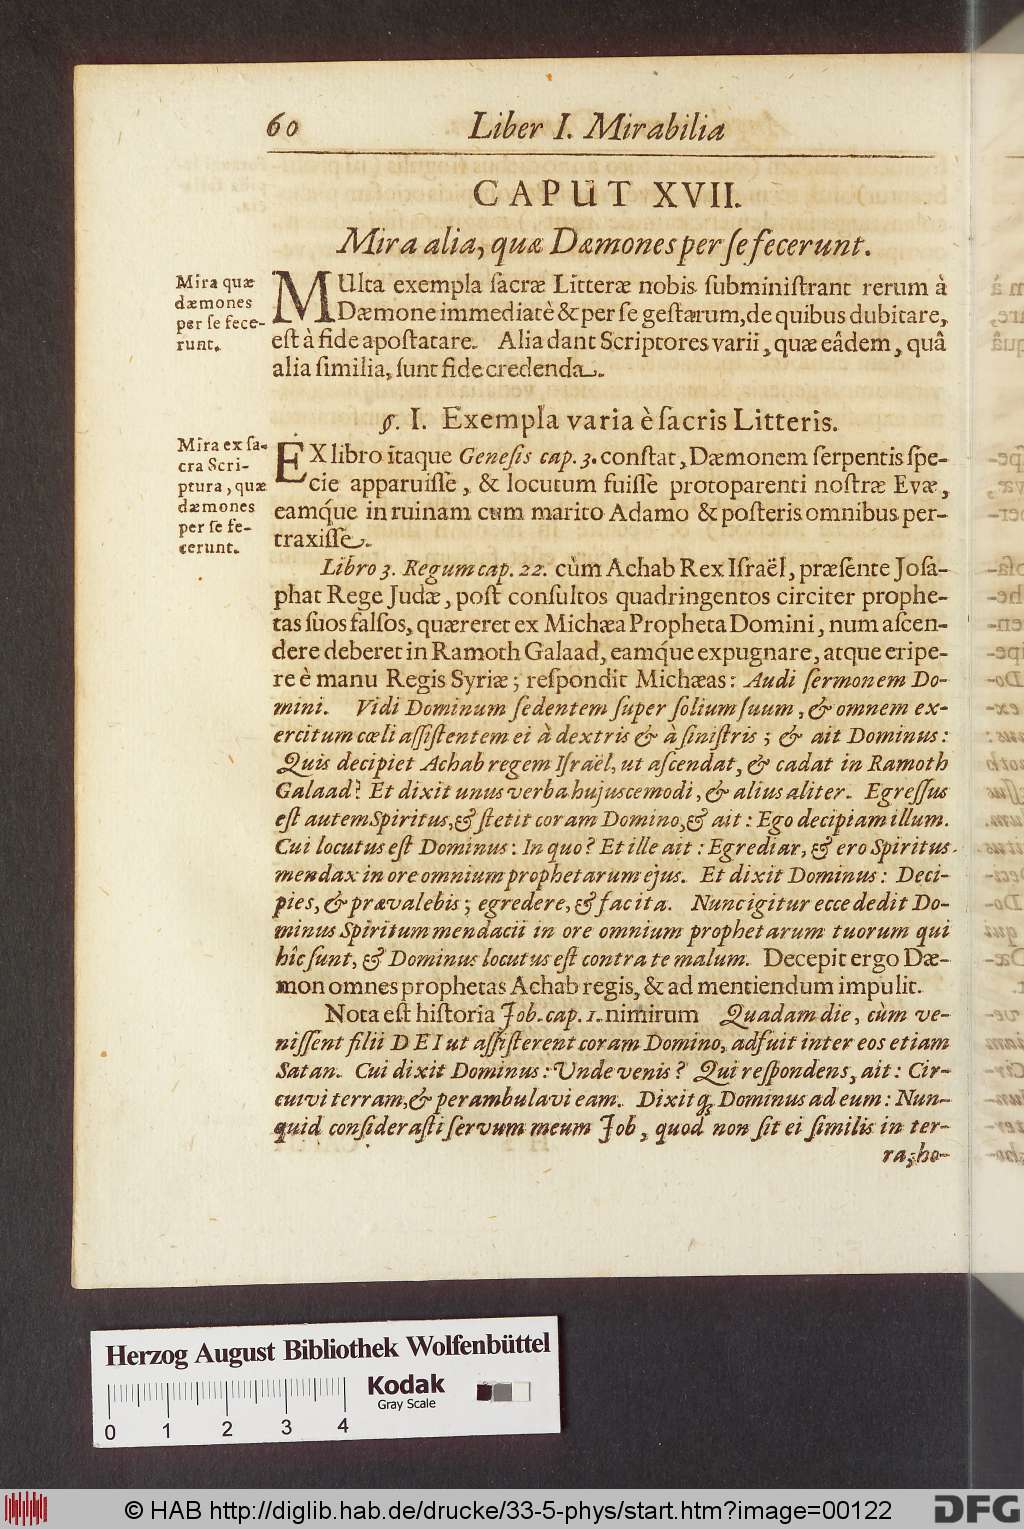 60 Liber I. Mirabilia
CAPUT XVII.
Mira alia, quæ Dæmones per ſe fecerunt.
Mira quæ
dæmones
per ſe fece-
runt.
MUlta exempla ſacræ Litteræ nobis ſubminiſtrant rerum à
Dæmone immediatè & per ſe geſtarum, de quibus dubitare,
eſt à fide apoſtatare. Alia dant Scriptores varii, quæ eâdem, quâ
alia ſimilia, ſunt fide credenda.
§. I. Exempla varia è ſacris Litteris.
Mira ex ſa-
cra Scri-
ptura, quæ
dæmones
per ſe fe-
cerunt.
EX libro itaque Geneſis cap. 3. conſtat, Dæmonem ſerpentis ſpe-
cie apparuiſſe, & locutum fuiſſe protoparenti noſtræ Evæ,
eamq́ue in ruinam cum marito Adamo & poſteris omnibus per-
traxiſſe.
Libro 3. Regum cap. 22. cùm Achab Rex Iſraël, præſente Joſa-
phat Rege Judæ, poſt conſultos quadringentos circiter prophe-
tas ſuos falſos, quæreret ex Michæa Propheta Domini, num aſcen-
dere deberet in Ramoth Galaad, eamq́ue expugnare, atque eripe-
re è manu Regis Syriæ; reſpondit Michæas: Audi ſermonem Do-
mini. Vidi Dominum ſedentem ſuper ſolium ſuum, & omnem ex-
ercitum cœli aſſiſtentem ei à dextris & à ſiniſtris; & ait Dominus:
Quis decipiet Achab regem Iſraël, ut aſcendat, & cadat in Ramoth
Galaad? Et dixit unus verba hujuscemodi, & alius aliter. Egreſſus
eſt autem Spiritus, & ſtetit coram Domino, & ait: Ego decipiam illum.
Cui locutus eſt Dominus: In quo? Et ille ait: Egrediar, & ero Spiritus
mendax in ore omnium prophetarum ejus. Et dixit Dominus: Deci-
pies, & prævalebis; egredere, & fac ita. Nunc igitur ecce dedit Do-
minus Spiritum mendacii in ore omnium prophetarum tuorum qui
hîc ſunt, & Dominus locutus eſt contra te malum. Decepit ergo Dæ-
mon omnes prophetas Achab regis, & ad mentiendum impulit.
Nota eſt hiſtoria Job. cap. 1. nimirum Quadam die, cùm ve-
niſſent filii DEI ut aſſiſterent coram Domino, adfuit inter eos etiam
Satan. Cui dixit Dominus: Unde venis? Qui reſpondens, ait: Cir-
cuivi terram, & perambulavi eam. Dixitq; Dominus ad eum: Nun-
quid conſideraſti ſervum meum Job, quod non ſit ei ſimilis in ter-
ra, ho-
Herzog August Bibliothek Wolfenbüttel
Kodak
Gray Scale
0 1 2 3 4
© HAB http://diglib.hab.de/drucke/33-5-phys/start.htm?image=00122
DFG